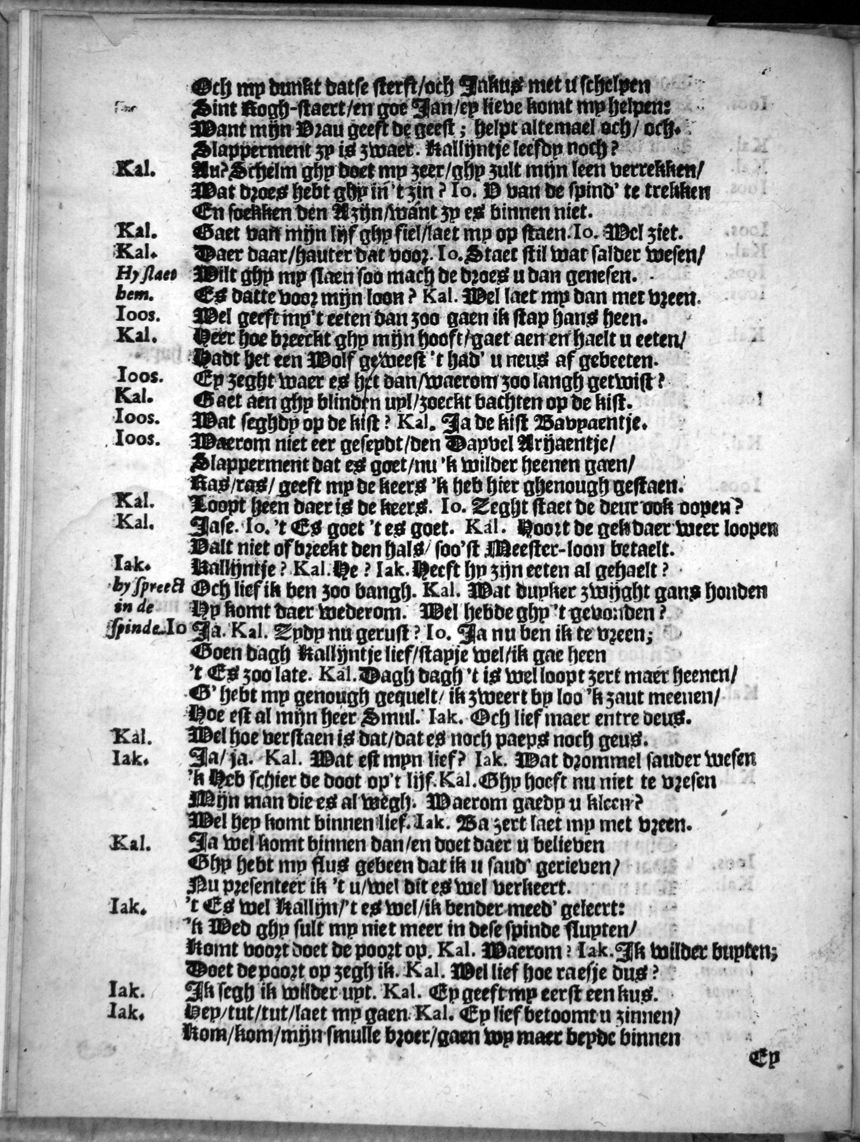 Och my dunkt datse sterft/och Jakus met u schelpen
Sint Kogh-staert/en goe Jan/ey lieve komt my helpen:
Want mijn Vrau geeft de geest; helpt altemael och/ och.
Slapperment zy is zwaer. Kallijntje leefdy noch?
Kal. Au? Schelm ghy doet my zeer/ghy zult mijn leen verrekken/
Wat droes hebt ghy in 't zin? Io. V van de spind' te trekken
En soekken den Azijn/want zy es binnen niet.
Kal. Gaet van mijn lijf ghy fiel/laet my op staen. Io. Wel ziet.
Kal. Daer daar/hauter dat voor. Io. Staet stil wat salder wesen/
Hy slaet Wilt ghy my slaen soo mach de droes u dan genesen.
hem. Es datte voor mijn loon? Kal. Wel laet my dan met vreen.
Ioos. Wel geeft my 't eeten dan zoo gaen ik stap hans heen.
Kal. Heer hoe breeckt ghy mijn hooft/gaet aen en haelt u eeten/
Hadt het een Wolf geweest 't had' u neus af gebeeten.
Ioos. Ey zeght waer es het dan/waerom zoo langh getwist?
Kal. Gaet aen ghy blinden uyl/zoeckt bachten op de kist.
Ioos. Wat seghdy op de kist? Kal. Ja de kist Bavyaentje.
Ioos. Waerom niet eer geseydt/den Dayvel Arijaentje/
Slapperment dat es goet/nu 'k wilder heenen gaen/
Ras/ras/ geeft my de keers 'k heb hier ghenough gestaen.
Kal. Loopt heen daer is de keers. Io. Zeght staet de deur ook oopen?
Kal. Jase. Io. 't Es goet 't es goet. Kal. Hoort de gek daer weer loopen
Valt niet of breekt den hals/ soo'st Meester-loon betaelt.
Iak. Kallijntje? Kal. He? Iak. Heeft hy zijn eeten al gehaelt?
hy spreect Och lief ik ben zoo bangh. Kal. Wat duyker zwijght gans honden
in de Hy komt daer wederom. Wel hebde ghy 't gevonden?
spinde. Io Ja. Kal. Zydy nu gerust? Io. Ja nu ben ik te vreen;
Goen dagh Kallijntje lief/stapje wel/ik gae heen
't Es zoo late. Kal. Dagh dagh 't is wel loopt zert maer heenen/
G' hebt my genough gequelt/ ik zweert by loo 'k zaut meenen/
Hoe est al mijn heer Smul. Iak. Och lief maer entre deus.
Kal. Wel hoe verstaen is dat/dat es noch paeps noch geus.
Iak. Ja/ ja. Kal. Wat est myn lief? Iak. Wat drommel sauder wesen
'k Heb schier de doot op't lijf. Kal. Ghy hoeft nu niet te vresen
Mijn man die es al wegh. Waerom gaedy u kleen?
Wel hey komt binnen lief. Iak. Ba zert laet my met vreen.
Kal. Ja wel komt binnen dan/en doet daer u believen
Ghy hebt my flus gebeen dat ik u saud' gerieven/
Nu presenteer ik 't u/wel dit es wel verkeert.
Iak. 't Es wel Kallijn/'t es wel/ik bender meed' geleert:
'k Wed ghy sult my niet meer in dese spinde sluyten/
Komt voort doet de poort op. Kal. Waerom? Iak. Ik wilder buyten;
Doet de poort op zegh ik. Kal. Wel lief hoe raesje dus?
Iak. Ik segh ik wilder uyt. Kal. Ey geeft my eerst een kus.
Iak. Hey/tut/tut/laet my gaen Kal. Ey lief betoomt u zinnen/
Kom/kom/mijn smulle broer/gaen wy maer beyde binnen
Ey